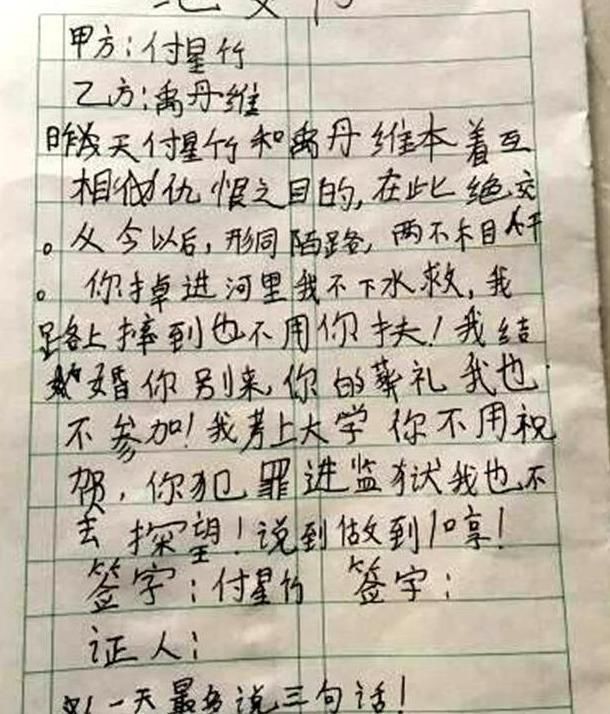 绝交书
甲方:付星竹
乙方:禹丹维
昨天付星竹和禹丹维本着互
相仇恨之目的,在此绝交
。从今以后,形同陌路,两不相干
。你掉进河里我不下水救,我
路上摔到也不用你扶!我结
婚你别来,你的葬礼我也
不参加!我考上大学你不用祝
贺,你犯罪进监狱我也不
去探望!说到做到!哼!
签字:付星竹 签字:
证人:
一天最多说三句话!